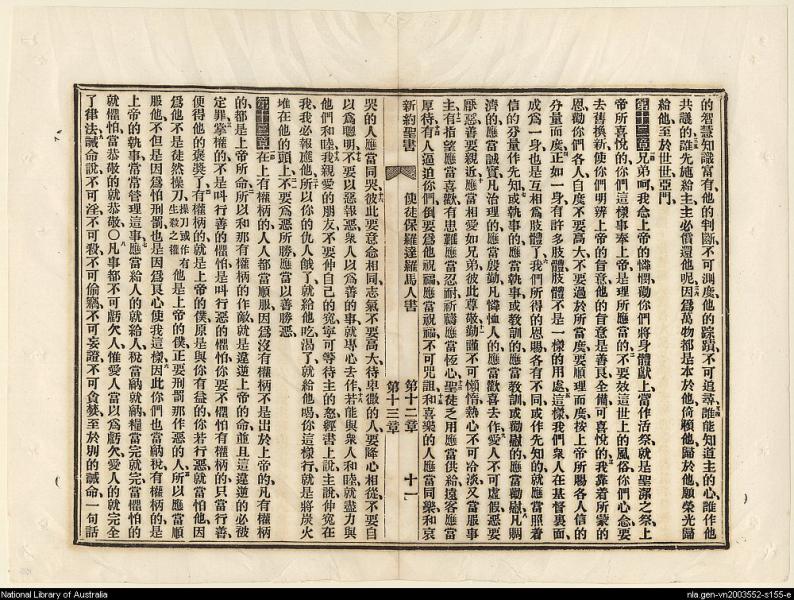 的智慧知識富有他的判斷不可測度他的踪蹟不可追尋誰能知道主的心誰作他
共議的誰先施給主主必償還他呢因爲萬物都是本於他倚賴他歸於他願榮光歸
給他至於世世亞門
第十二章 兄弟呵我念上帝的憐憫勸你們將身體獻上當作活祭就是聖潔之祭上
帝所喜悅的你們這樣事奉上帝是理所應當的不要效這世上的風俗你們心念要
去舊換新使你們明辨上帝的旨意他的旨意是善良全備可喜悅的我靠着所蒙的
恩勸你們各人自度不要高大不要過於所當度要順理而度按上帝所賜各人信的
分量而度正如一身有許多肢體肢體不是一樣的用處這樣我們衆人在基督裏面
成爲一身也是互相爲肢體了我們所得的恩賜各有不同或作先知的就應當照着
信的分量作先知或執事的應當執事或教訓的應當教訓或勸慰的應當勸慰凡賙
濟的應當誠實凡治理的應當殷勤凡憐恤人的應當歡喜去作愛人不可虛假惡要
厭惡善要親近應當相愛如兄弟彼此尊敬勤謹不可懶惰熱心不可冷淡又當服事
主有指望應當喜歡有患難應當忍耐祈禱應當恆心聖徒乏用應當供給遠客應當
厚待有人逼迫你們倒要爲他祝福應當祝福不可咒詛和喜樂的人應當同樂和哀
新約聖書 使徒保羅達羅馬人書 第十二章 第十三章 十一
哭的人應當同哭彼此要意念相同志氣不要高大待卑微的人要降心相從不要自
以爲聰明不要以惡報惡衆人以爲善的事就專心去作若能與衆人和睦就盡力與
他們和睦我親愛的朋友不要伸自己的寃寧可等待主的怒經書上說主說伸寃在
我我必報應他所以你的仇人餓了就給他吃渴了就給他喝你這樣行就是將炭火
堆在他的頭上不要爲惡所勝應當以善勝惡
第十三章 在上有權柄的人人都當順服因爲沒有權柄不是出於上帝的凡有權柄
的都是上帝所命所以和那有權柄的作敵就是違逆上帝的命並且這違逆的必被
定罪掌權的不是叫行善的懼怕是叫行惡的懼怕你要不懼怕有權柄的只當行善
便得他的褒獎了有權柄的就是上帝的僕原是與你有益的你若行惡就當怕他因
爲他不是徒然操刀操刀或作有生殺之權他是上帝的僕正要刑罰那作惡的人所以應當順
服他不但是因爲怕刑罰也是因爲良心使我這樣因此你們也當納稅有權柄的是
上帝的執事常常管理這事應當給人的就給人稅當納就納糧當完就完當懼怕的
就懼怕當恭敬的就恭敬〇凡事都不可虧欠人惟愛人當以爲虧欠愛人的就完全
了律法誡命說不可淫不可殺不可偷竊不可妄證不可貪婪至於別的誡命一句話
National Library of Australia
nla.gen-vn2003552-s155-e